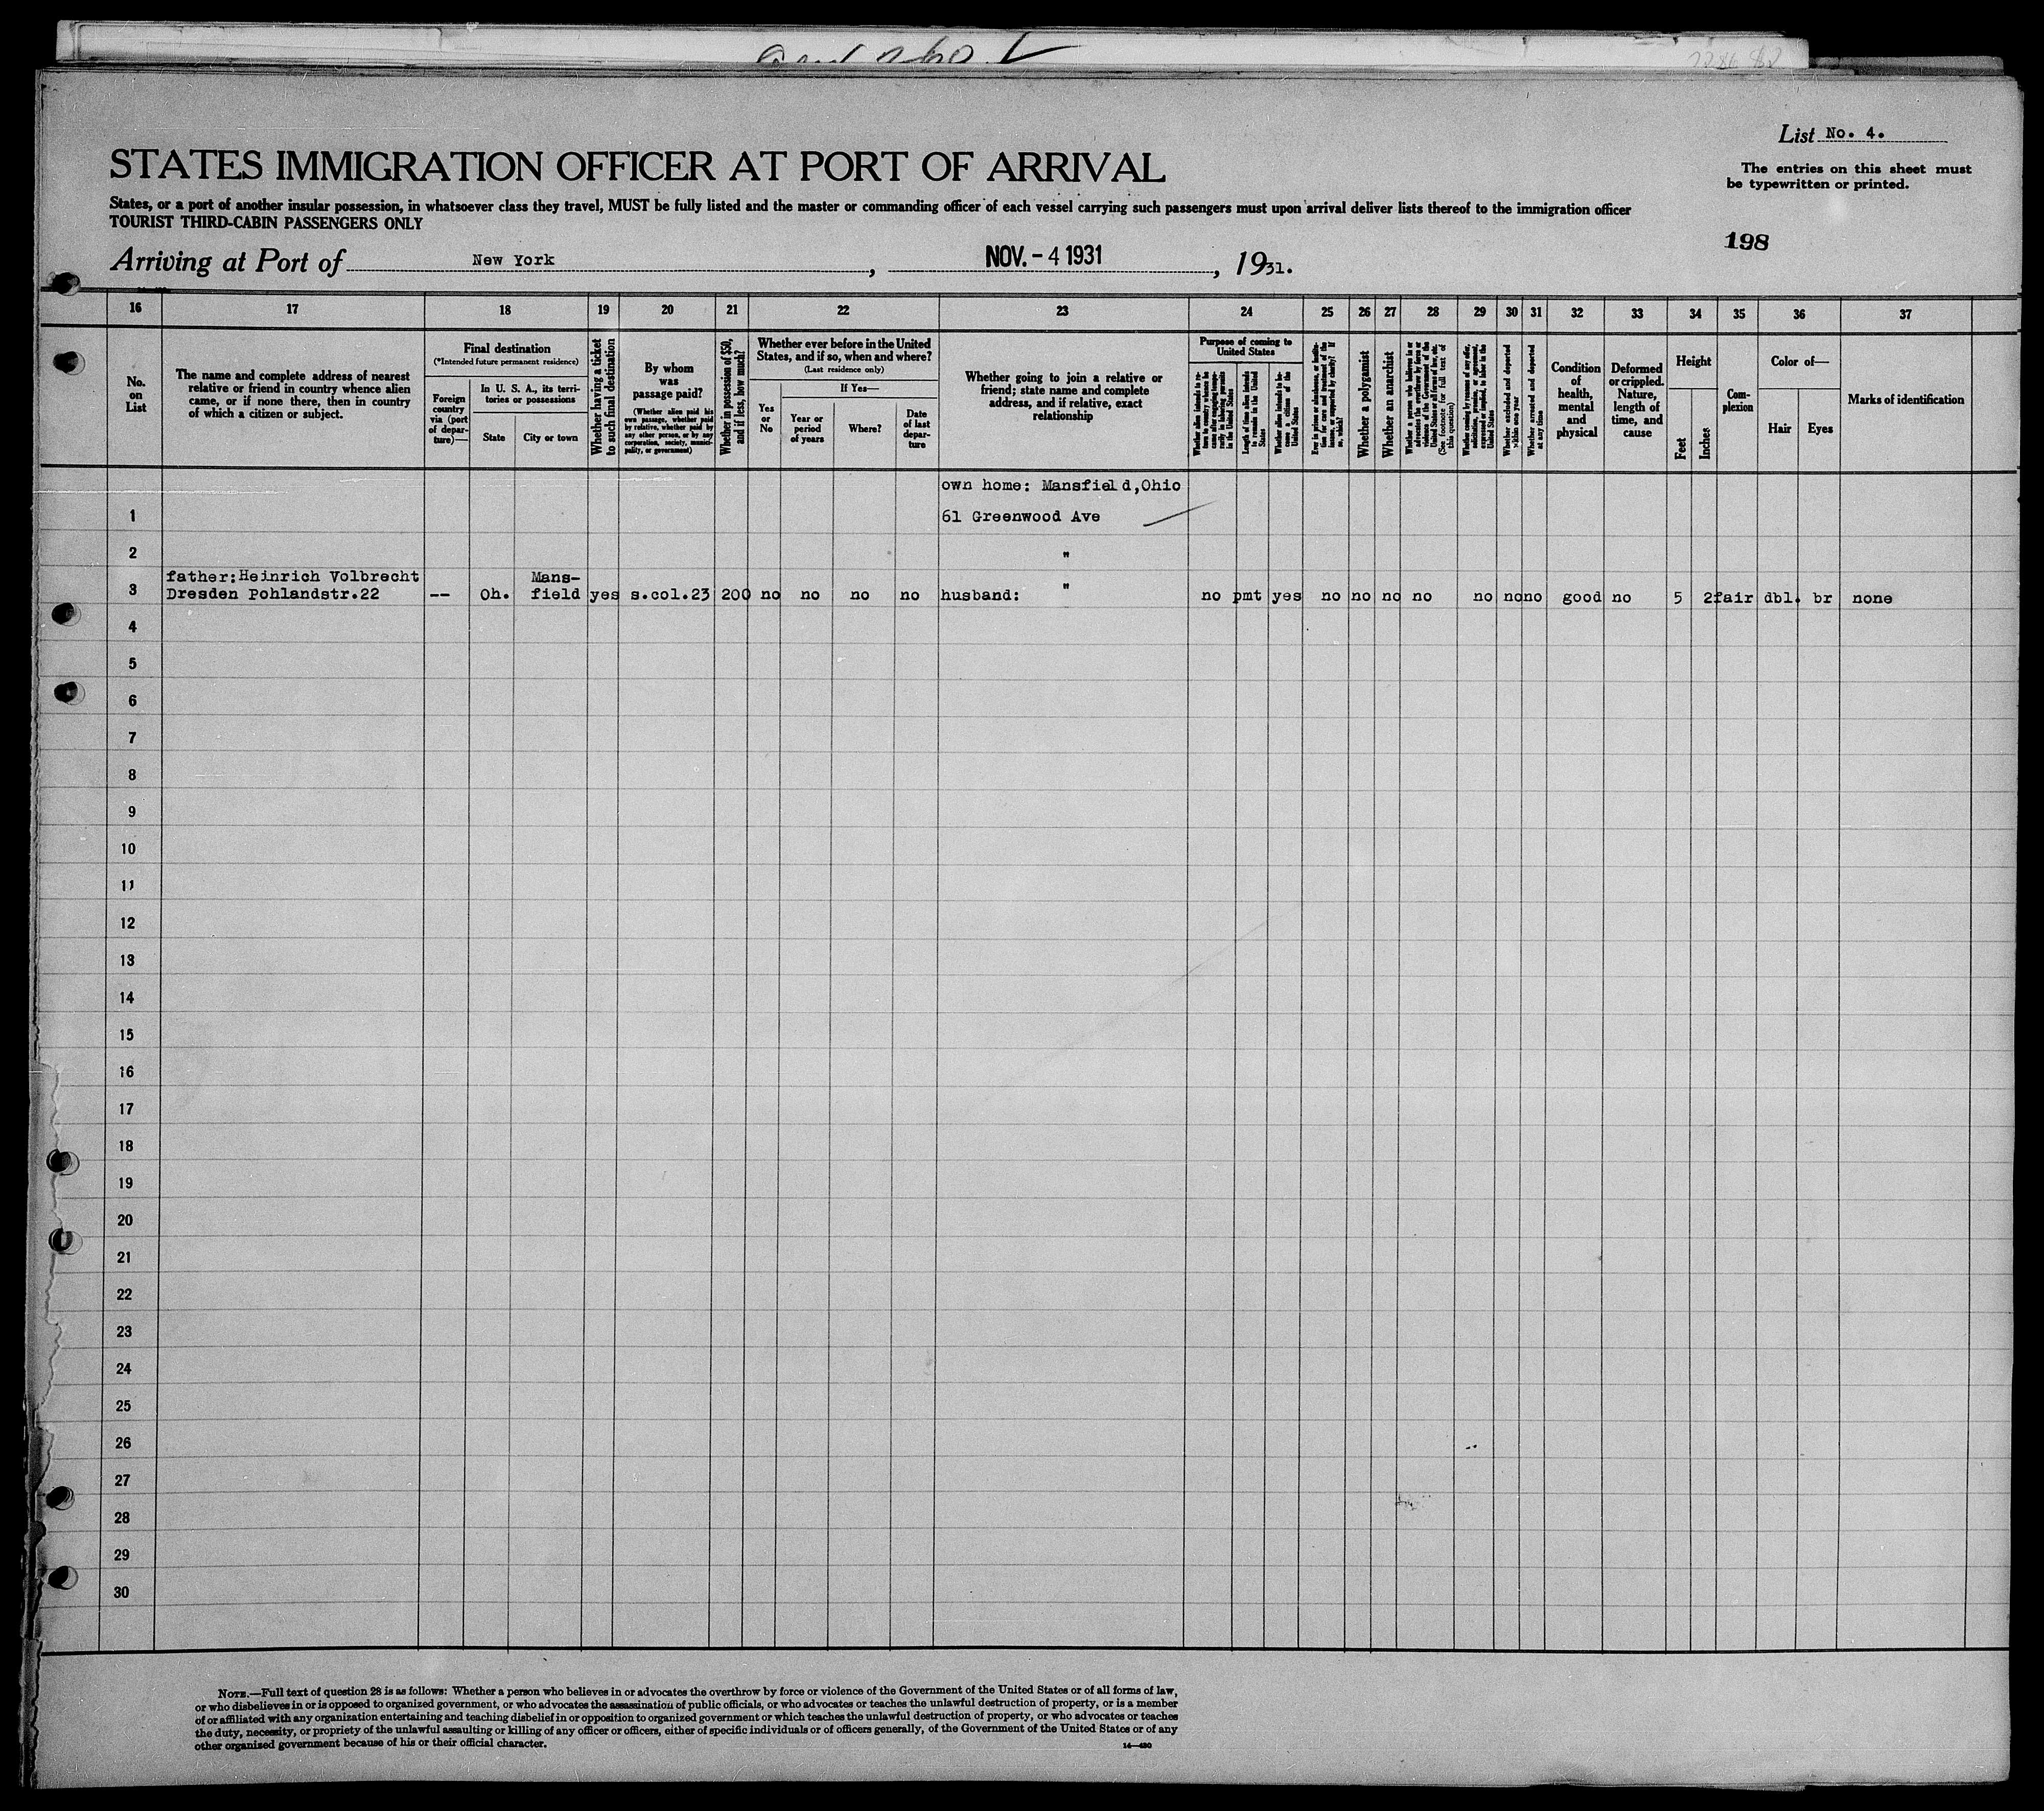 List No. 4.
STATES IMMIGRATION OFFICER AT PORT OF ARRIVAL
The entries on this sheet must
be typewritten or printed.
States, or a port of another insular possession, in whatsoever class they travel, MUST be fully listed and the master or commanding officer of each vessel carrying such passengers must upon arrival deliver lists thereof to the immigration officer
TOURIST THIRD-CABIN PASSENGERS ONLY
198
Arriving at Port of New York, NOV. - 4 1931, 1931.
16 17 18 19 20 21 22 23 24 25 26 27 28 29 30 31 32 33 34 35 36 37
No.
on
List
The name and complete address of nearest
relative or friend in country whence alien
came, or if none there, then in country
of which a citizen or subject.
Final destination
(*Intended future permanent residence)
Foreign
country
via (port
of depar-
ture)—
In U. S. A., its terri-
tories or possessions
State
City or town
Whether having a ticket
to such final destination
By whom
was
passage paid?
(Whether alien paid his
own passage, whether paid
by relative, whether paid by
any other person, or by any
corporation, society, munici-
pality, or government)
Whether in possession of $50,
and if less, how much?
Whether ever before in the United
States, and if so, when and where?
(Last residence only)
Yes
or
No
If Yes—
Year or
period
of years
Where?
Date
of last
depar-
ture
Whether going to join a relative or
friend; state name and complete
address, and if relative, exact
relationship
Purpose of coming to
United States
Whether alien intends to re-
turn to country whence he
came after engaging tempo-
rarily in laboring pursuits
in the United States
Length of time alien intends
to remain in the United
States
Whether alien intends to be-
come a citizen of the
United States
Ever in prison or almshouse, or institu-
tion for care and treatment of the
insane, or supported by charity? If
so, which?
Whether a polygamist
Whether an anarchist
Whether a person who believes in or
advocates the overthrow by force or
violence of the Government of the
United States or all forms of law, etc.
(See footnote for full text of
this question)
Whether coming by reasons of any offer,
solicitation, promise, or agreement,
expressed or implied, to labor in the
United States
Whether excluded and deported
within one year
Whether arrested and deported
at any time
Condition
of
health,
mental
and
physical
Deformed
or crippled.
Nature,
length of
time, and
cause
Height
Feet
Inches
Com-
plexion
Color of—
Hair
Eyes
Marks of identification
own home: Mansfield,Ohio
1 61 Greenwood Ave
2 "
father:Heinrich Volbrecht Mans- "
3 Dresden Pohlandstr.22 -- Oh. field yes s.col.23 200 no no no no husband: no pmt yes no no no no no no no good no 5 2 fair dbl. br none
4
5
6
7
8
9
10
11
12
13
14
15
16
17
18
19
20
21
22
23
24
25
26
27
28
29
30
NOTE.—Full text of question 28 is as follows: Whether a person who believes in or advocates the overthrow by force or violence of the Government of the United States or of all forms of law,
or who disbelieves in or is opposed to organized government, or who advocates the assassination of public officials, or who advocates or teaches the unlawful destruction of property, or is a member
of or affiliated with any organization entertaining and teaching disbelief in or opposition to organized government or which teaches the unlawful destruction of property, or who advocates or teaches
the duty, necessity, or propriety of the unlawful assaulting or killing of any officer or officers, either of specific individuals or of officers generally, of the Government of the United States or of any
other organized government because of his or their official character.
14—430